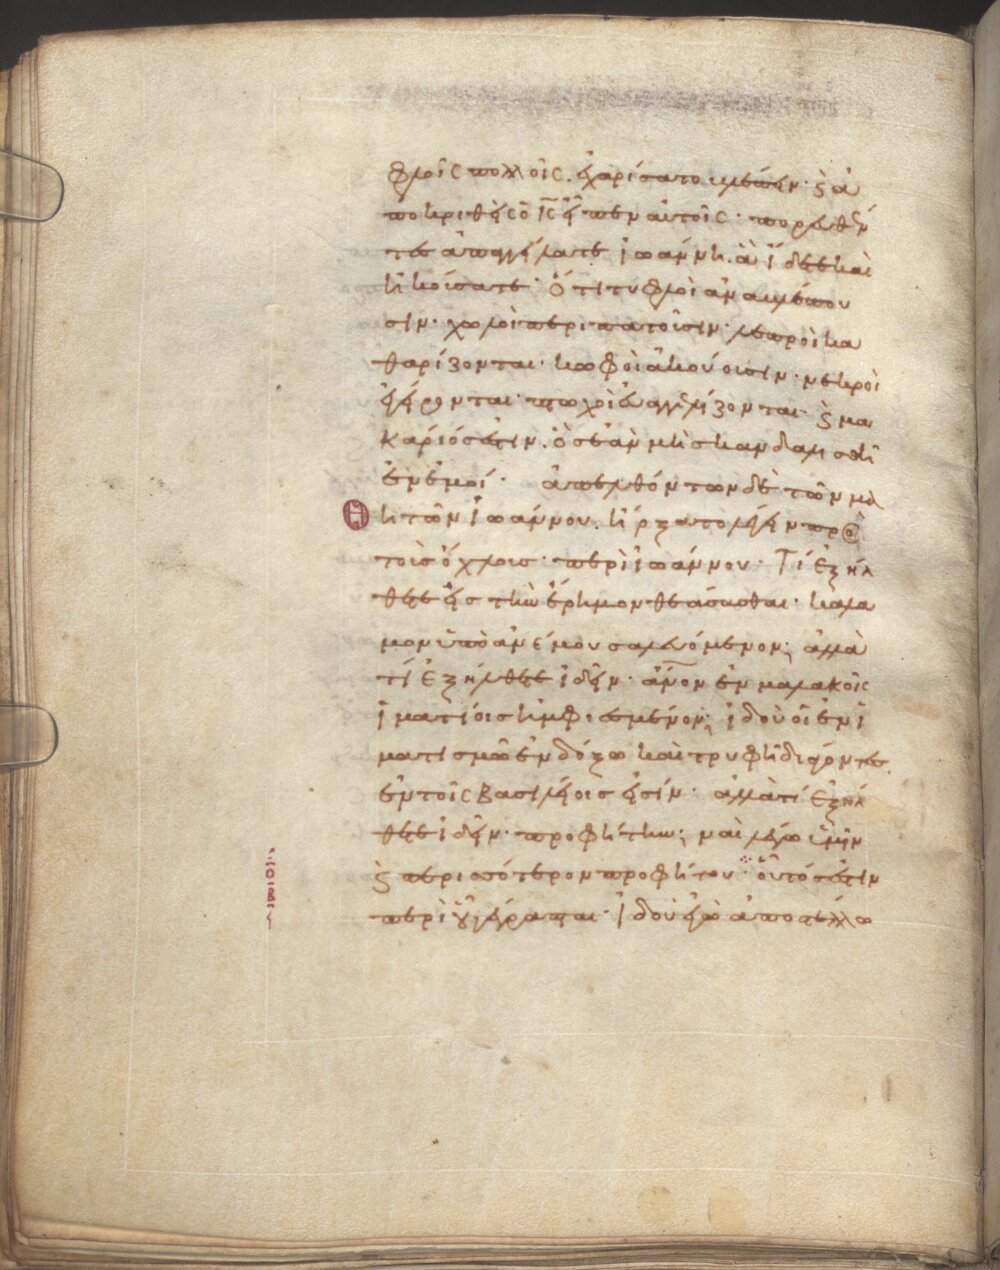 φλοῖς πολλοῖς. ἐχαρίσατο βλέπειν· ϗ ἀ
ποκριθεὶς ὁ ἰ̅ς̅ εἶπεν αὐτοῖς· πορευθέν
τες ἀπαγγείλατε ἰωάννη. ἃ ἴδετε καὶ
ἠκούσατε· Ὅτι τυφλοὶ ἀναβλέπου
σιν· χωλοὶ περιπατοῦσιν· λεπροὶ κα
θαρίζονται· κωφοὶ ἀκούουσιν· νεκροὶ
ἐγείρονται· πτωχοὶ εὐαγγελίζονται· ϗ μα
κάριός ἐστιν. ὃς ἐὰν μὴ σκανδαλισθῆ
ἐν ἐμοί· ἀπελθόντων δὲ τῶν μα
θητῶν ἰωάννου. ἤρξατο λέγειν προς
τοὺς ὄχλους· περὶ ἰωάννου· Τί ἐξήλ
θετε εἰς τὴν ἔρημον θεάσασθαι· καλα
μον ὑπὸ ἀνέμου σαλευόμενον; ἀλλὰ
τί ἐξήλθετε ἰδεῖν· ἄν̅ον ἐν μαλακοῖς
ἱματίοις ἠμφιεσμένον; ἰδοὺ οἱ ἐν ἱ
ματισμῶ ἐνδόξω καὶ τρυφῆ διάγοντες
ἐν τοῖς βασιλείοις εἰσίν· ἀλλὰ τί ἐξήλ
θετε ἰδεῖν· προφήτην; ναὶ λέγω ὑμῖν
ϗ περισσότερον προφήτου· οὗτός ἐστιν
περὶ οὗ γέγραπται· ἰδοὺ ἐγὼ ἀποστέλλω